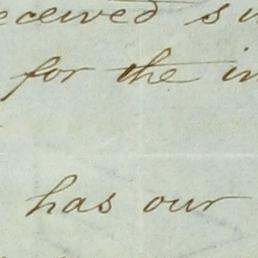 eceived su
for the in
has our